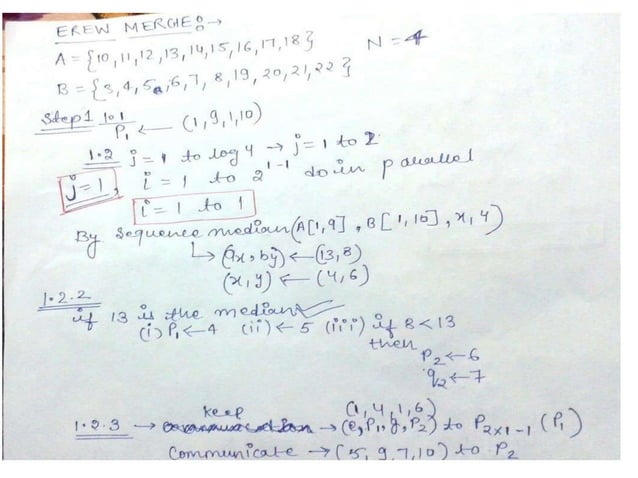 EREW MERGE:→
A = {10,11,12,13,14,15,16,17,18} N = 4
B = {3,4,5,6,7,8,19,20,21,22}
Step 1 1.1 P₁ ← (1,9,1,10)
1.2 j = 1 to log 4 → j = 1 to 2
j=1, i = 1 to 2¹⁻¹ do in parallel
i = 1 to 1
By sequence median (A[1,9], B[1,10], x, y)
↳ (ax, by) ← (13,8)
(x,y) ← (4,6)
1.2.2
if 13 is the median
(i) P₁ ← 4 (ii) ← 5 (iii) if 8 < 13
then
P₂ ← 6
q₂ ← 7
keep (1,4,1,6)
1.2.3 → → (e, P₁, g, P₂) to P₂ₓ₁₋₁ (P₁)
Communicate → (5,9,7,10) to P₂